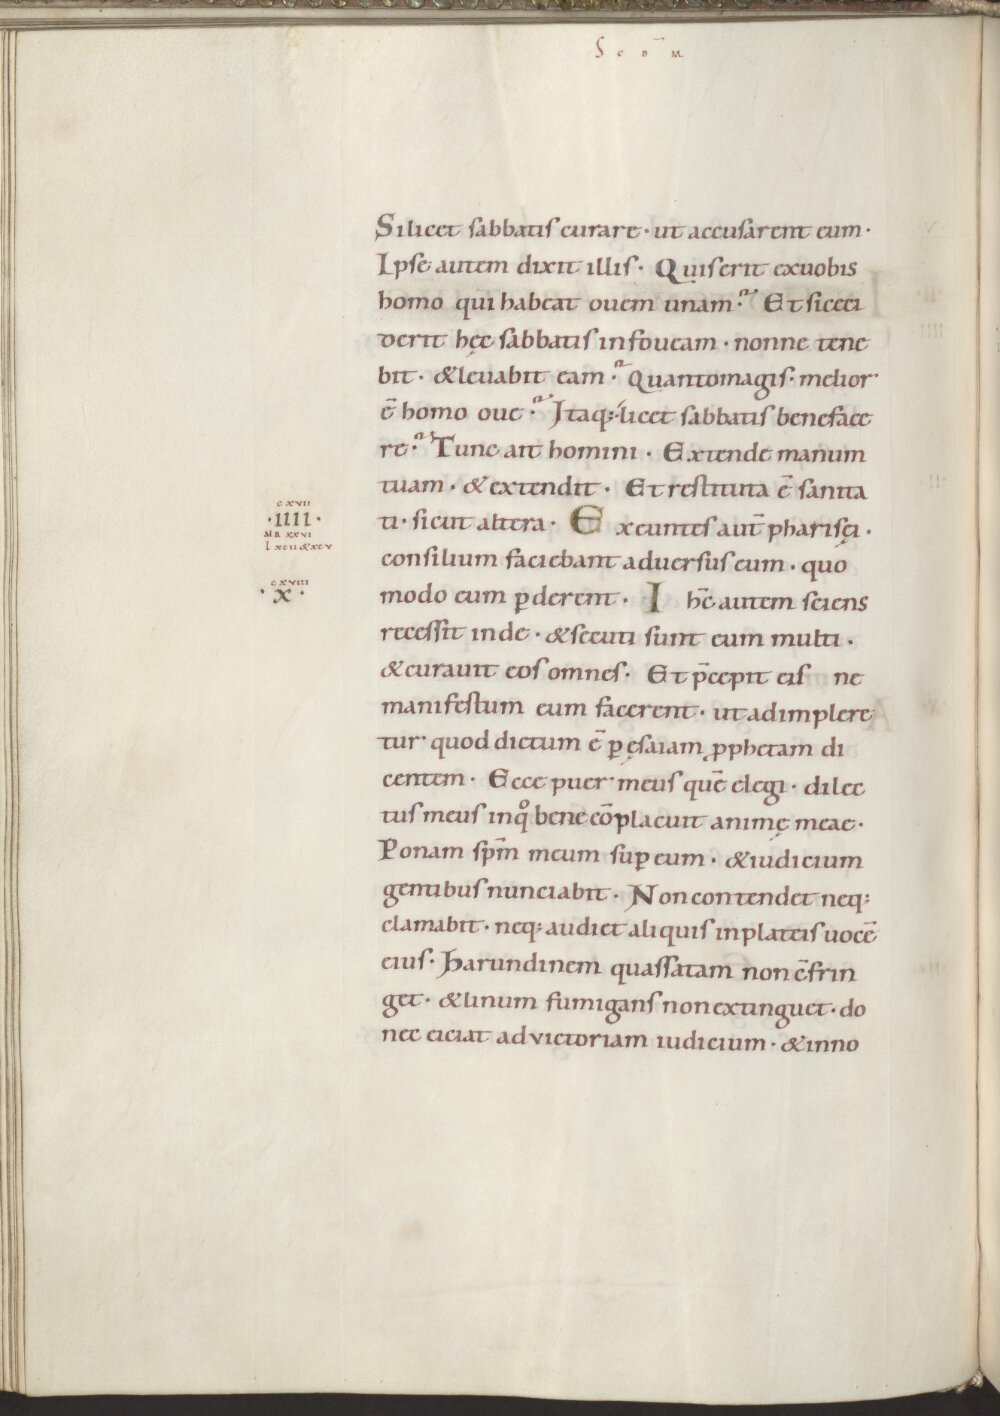 S c o̅ M
Silicet sabbatis curare · ut accusarent eum ·
Ipse autem dixit illis · Quis erit exuobis
homo qui habeat ouem unam · Et si ceci
derit hęc sabbatis in foueam · nonne tene
bit · & leuabit eam · Quantomagis · melior
ē homo oue · Itaq; licet sabbatis beneface
re · Tunc ait homini · Extende manum
tuam · & extendit · Et restituta ē sanita
ti · sicut altera · Exeuntes aut̄ pharisęi ·
consilium faciebant aduersus eum · quo
modo eum ꝑderent · Ihc̄ autem sciens
recessit inde · & secuti sunt eum multi ·
& curauit eos omnes · Et p̄cepit eis ne
manifestum eum facerent · ut adimplere
tur quod dictum ē ꝑ ęsaiam ꝓphetam di
centem · Ecce puer meus quē elegi · dilec
tus meus inqͦ bene cōplacuit animę meae ·
Ponam sp̄m meum suꝑ eum · & iudicium
gentibus nunciabit · Non contendet neq;
clamabit · neq; audiet aliquis inplateis uocē
eius · Harundinem quassatam non c̄frin
get · & linum fumigans non extinguet · do
nec eiciat ad victoriam iudicium · & inno
CXVII
· IIII ·
MR XXVI
CXVIII
· X ·